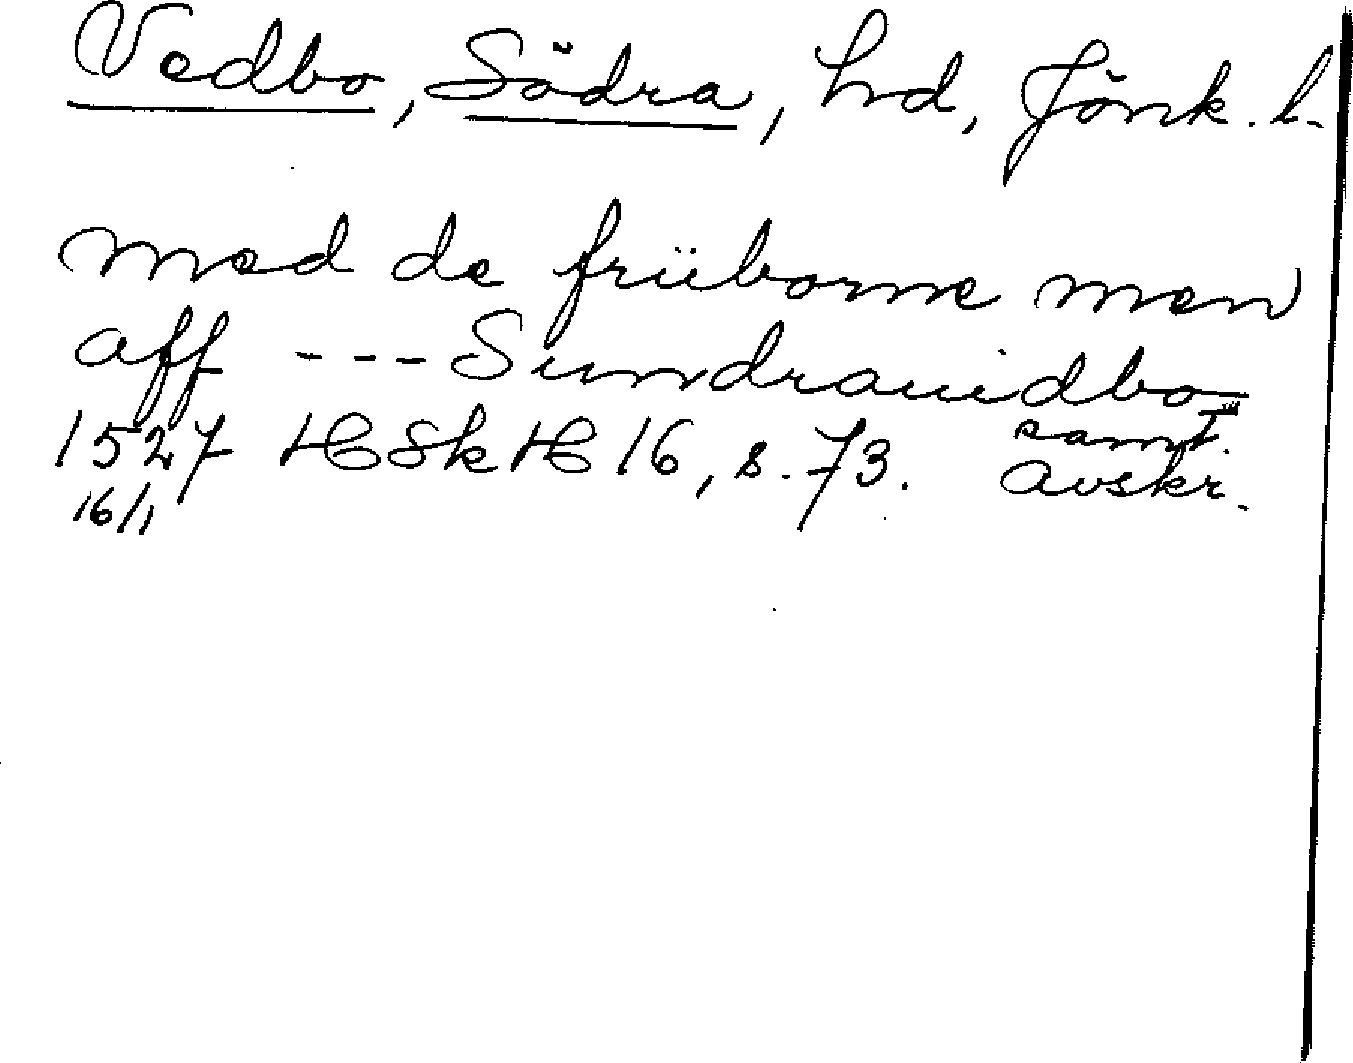 Vedbo, Södra, hd, Jönk. l.
med de friiborne men
aff --- Sundrauidbo
1527 HSkH 16, s. 73. samt.
16/1 avskr.